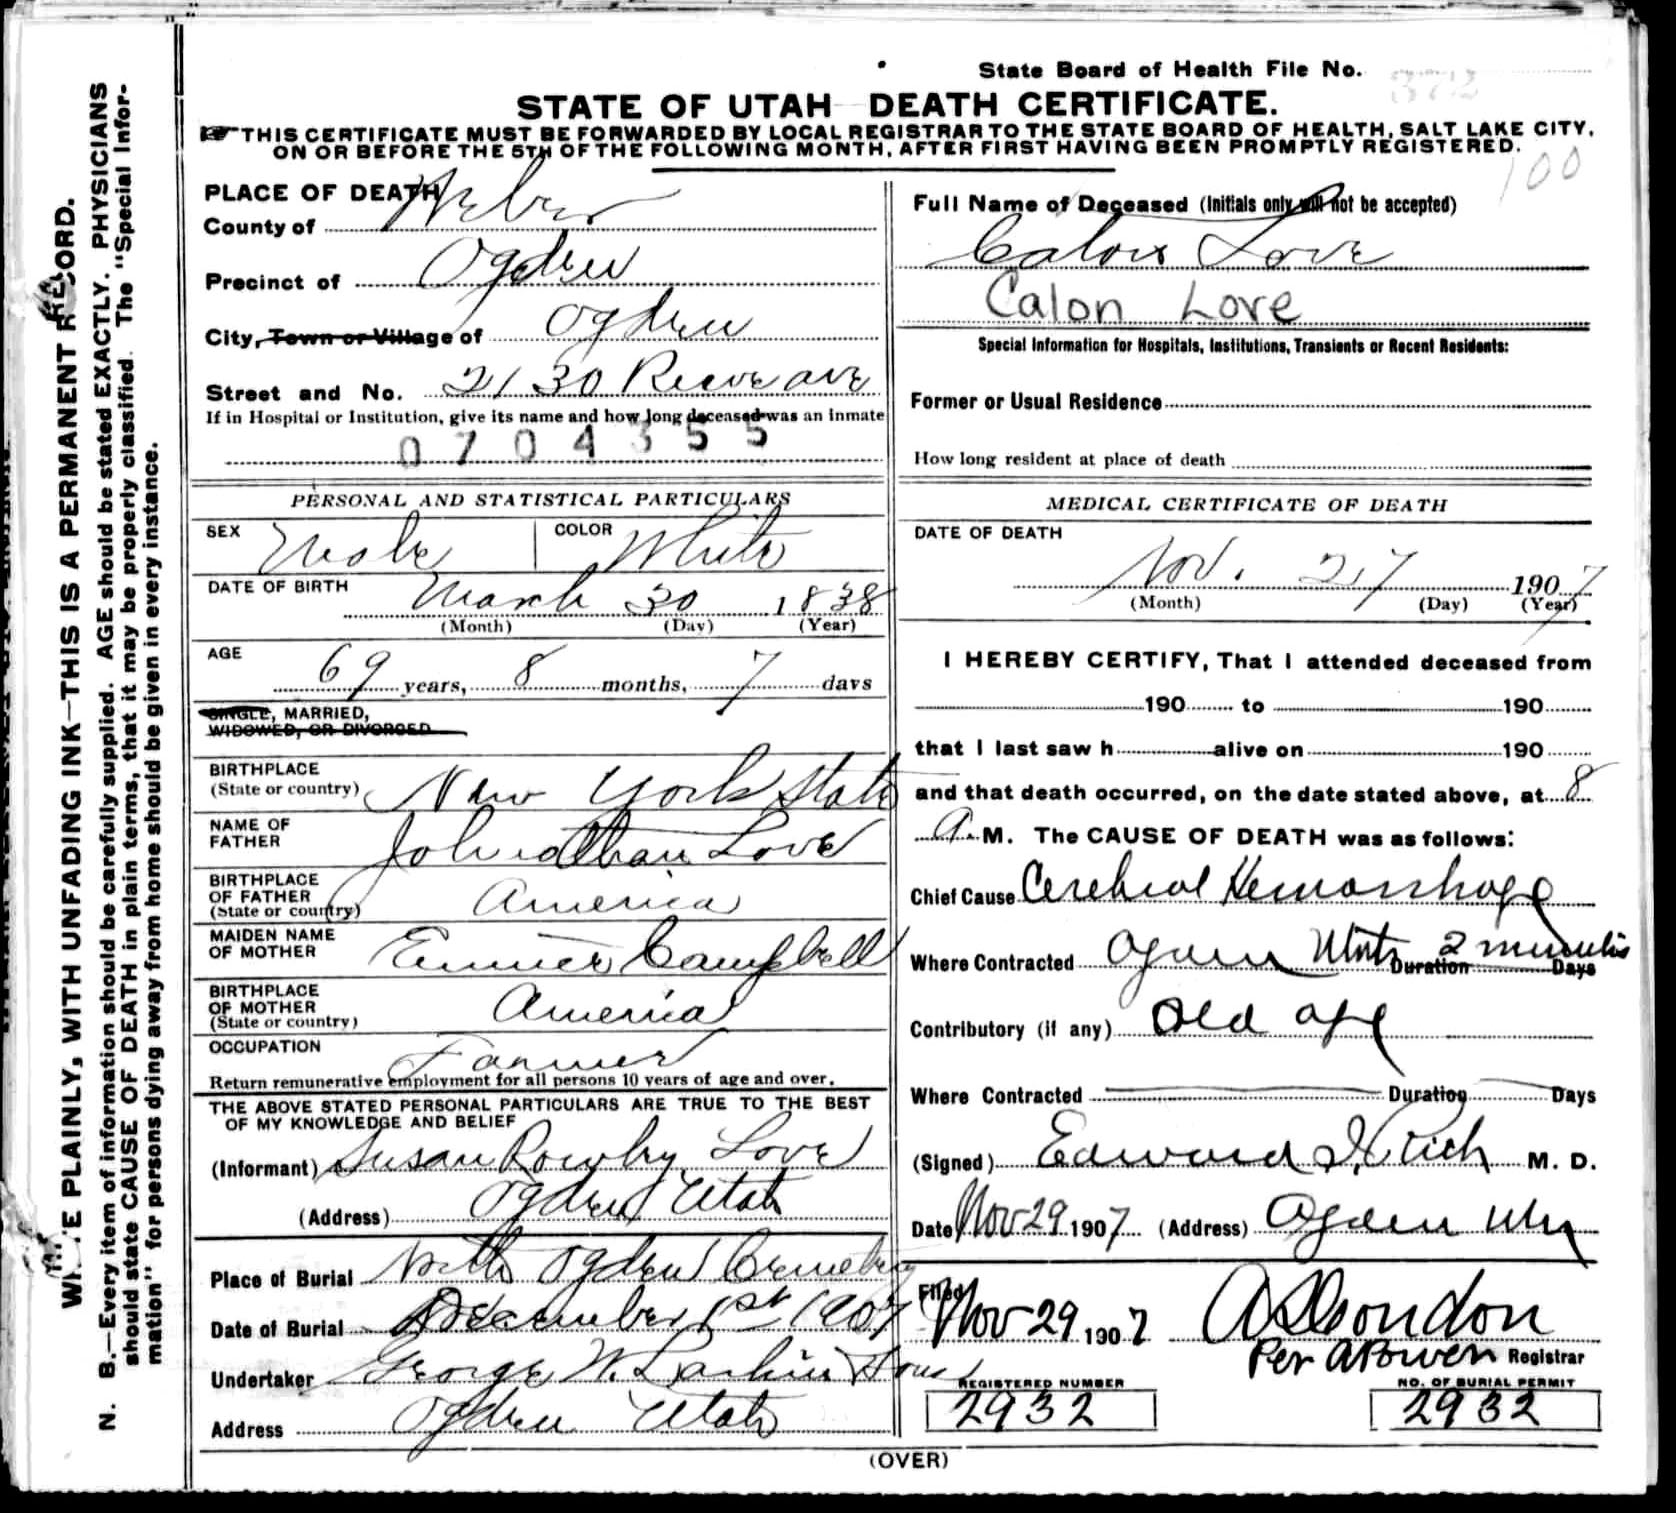 State Board of Health File No.
STATE OF UTAH DEATH CERTIFICATE.
THIS CERTIFICATE MUST BE FORWARDED BY LOCAL REGISTRAR TO THE STATE BOARD OF HEALTH, SALT LAKE CITY,
ON OR BEFORE THE 5TH OF THE FOLLOWING MONTH, AFTER FIRST HAVING BEEN PROMPTLY REGISTERED.
100
N. B.—Every item of information should be carefully supplied. AGE should be stated EXACTLY. PHYSICIANS
should state CAUSE OF DEATH in plain terms, that it may be properly classified. The "Special Infor-
mation" for persons dying away from home should be given in every instance.
WRITE PLAINLY, WITH UNFADING INK—THIS IS A PERMANENT RECORD.
PLACE OF DEATH
County of Weber
Precinct of Ogden
City, Town or Village of Ogden
Street and No. 2130 Reeve ave
If in Hospital or Institution, give its name and how long deceased was an inmate
0704355
PERSONAL AND STATISTICAL PARTICULARS
SEX Male COLOR White
DATE OF BIRTH March 30 1838
(Month) (Day) (Year)
AGE
69 years, 8 months, 7 days
SINGLE, MARRIED,
WIDOWED, OR DIVORCED
BIRTHPLACE
(State or country) New York State
NAME OF
FATHER Johnathan Love
BIRTHPLACE
OF FATHER
(State or country) America
MAIDEN NAME
OF MOTHER Campbell
BIRTHPLACE
OF MOTHER
(State or country) America
OCCUPATION Farmer
Return remunerative employment for all persons 10 years of age and over.
THE ABOVE STATED PERSONAL PARTICULARS ARE TRUE TO THE BEST
OF MY KNOWLEDGE AND BELIEF
(Informant) Susan Rowby Love
(Address) Ogden Utah
Place of Burial North Ogden Cemetery
Date of Burial December 1st 1907
Undertaker George W. Larkin & Sons
Address Ogden Utah
Full Name of Deceased (Initials only will not be accepted)
Calon Love
Calon Love
Special Information for Hospitals, Institutions, Transients or Recent Residents:
Former or Usual Residence
How long resident at place of death
MEDICAL CERTIFICATE OF DEATH
DATE OF DEATH
Nov. 27 1907
(Month) (Day) (Year)
I HEREBY CERTIFY, That I attended deceased from
190 to 190
that I last saw h alive on 190
and that death occurred, on the date stated above, at 8
A. M. The CAUSE OF DEATH was as follows:
Chief Cause Cerebral Hemorrhage
Where Contracted Ogden Utah Duration 2 minutes Days
Contributory (if any) Old age
Where Contracted Duration Days
(Signed) Edward I. Rich M. D.
Date Nov 29 1907 (Address) Ogden Utah
Filed
Nov 29 1907 Condon
Per Registrar
REGISTERED NUMBER
2932
NO. OF BURIAL PERMIT
2932
(OVER)